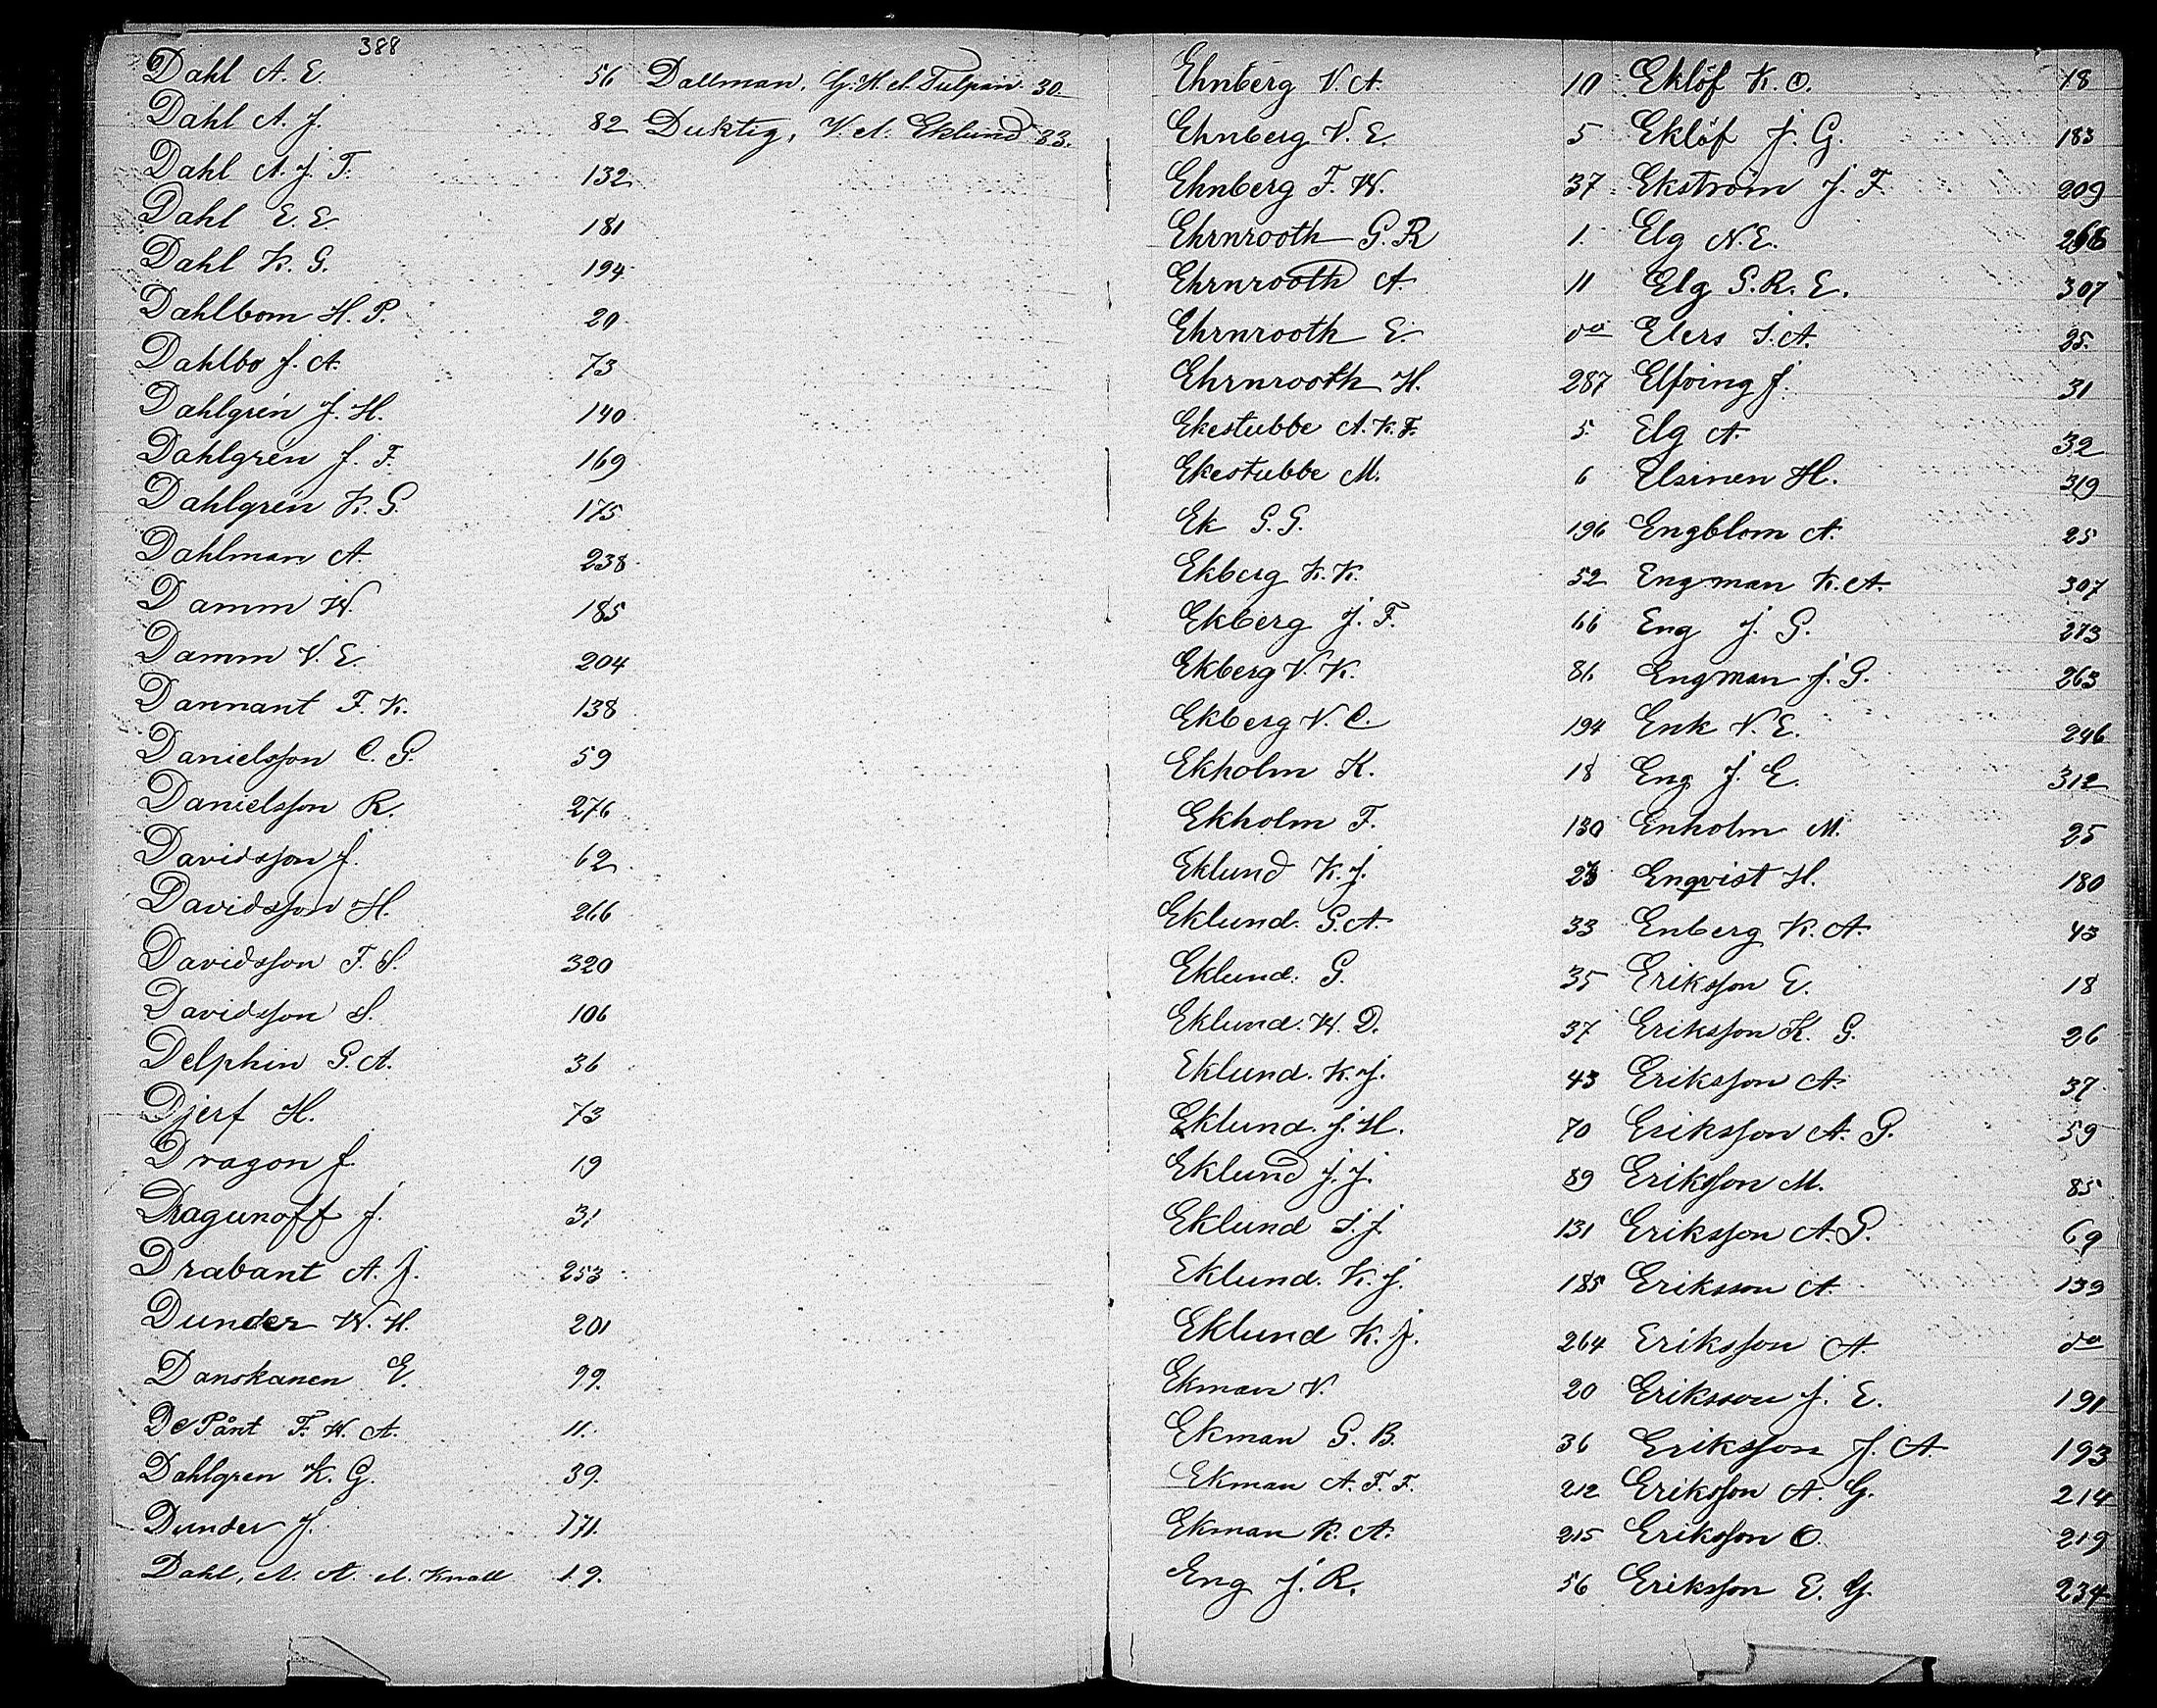 388
Dahl A. E. 56
Dahl A. J. 82
Dahl A. J. T. 132
Dahl E. E. 181
Dahl K. G. 194
Dahlbom H. P. 20
Dahlbo J. A. 73
Dahlgrén J. H. 140
Dahlgren J. F. 169
Dahlgrén K. G. 175
Dahlman A. 238
Damm W. 185
Damm V. E. 204
Dannant F. K. 138
Danielsson C. G. 59
Danielsson R. 276
Davidsson J. 62
Davidsson H. 266
Davidsson F. S. 320
Davidsson S. 106
Delphin G. A. 36
Djerf H. 73
Dragon J. 19
Dragunoff J. 31
Drabant A. J. 253
Dunder W. H. 201
Danskanen E. 99.
De Pånt F. W. A. 11.
Dahlgren K. G. 39.
Dunder J. 171.
Dahl, A. A. Knall 19.
Dallman, G. H. Tulpan 30.
Duktig, V. Eklund 33.
Ehnberg V. A. 10
Ehnberg V. E. 5
Ehnberg F. W. 37
Ehrnrooth G. R 1.
Ehrnrooth A. 11
Ehrnrooth E. do
Ehrnrooth H. 287
Ekestubbe A. K. F. 5
Ekestubbe M. 6
Ek G. G. 196
Ekberg K. K. 52
Ekberg J. F. 66
Ekberg V. K. 86
Ekberg V. C. 194
Ekholm K. 18
Ekholm F. 130
Eklund K. J. 23
Eklund. G. A. 33
Eklund. G. 35
Eklund. W. D. 37
Eklund. K. J. 43
Eklund. J. H. 70
Eklund J. J. 89
Eklund S. J. 131
Eklund. K. J. 185
Eklund K. J. 264
Ekman V. 20
Ekman G. B. 36
Ekman A. F. F. 212
Ekman K. A. 215
Eng J. R. 56
Eklöf K. O. 18
Eklöf J. G. 183
Ekström J. F. 209
Elg N. E.
Elg G. R. E. 307
Elers S. A. 25.
Elfving J. 31
Elg A. 32
Elsinen H. 319
Engblom A. 25
Engman K. A. 307
Eng J. G. 273
Engman J. G. 263
Enk V. E. 246
Eng J. E. 312
Enholm M. 25
Enqvist H. 180
Enberg K. A. 43
Eriksson E. 18
Eriksson K. G. 26
Eriksson A. 37
Eriksson A. G. 59
Eriksson M. 85
Eriksson A. G. 69
Eriksson A. 139
Eriksson A. do
Eriksson J. E. 191
Eriksson J. A. 193
Eriksson A. G. 214
Eriksson O. 219
Eriksson E. G. 234